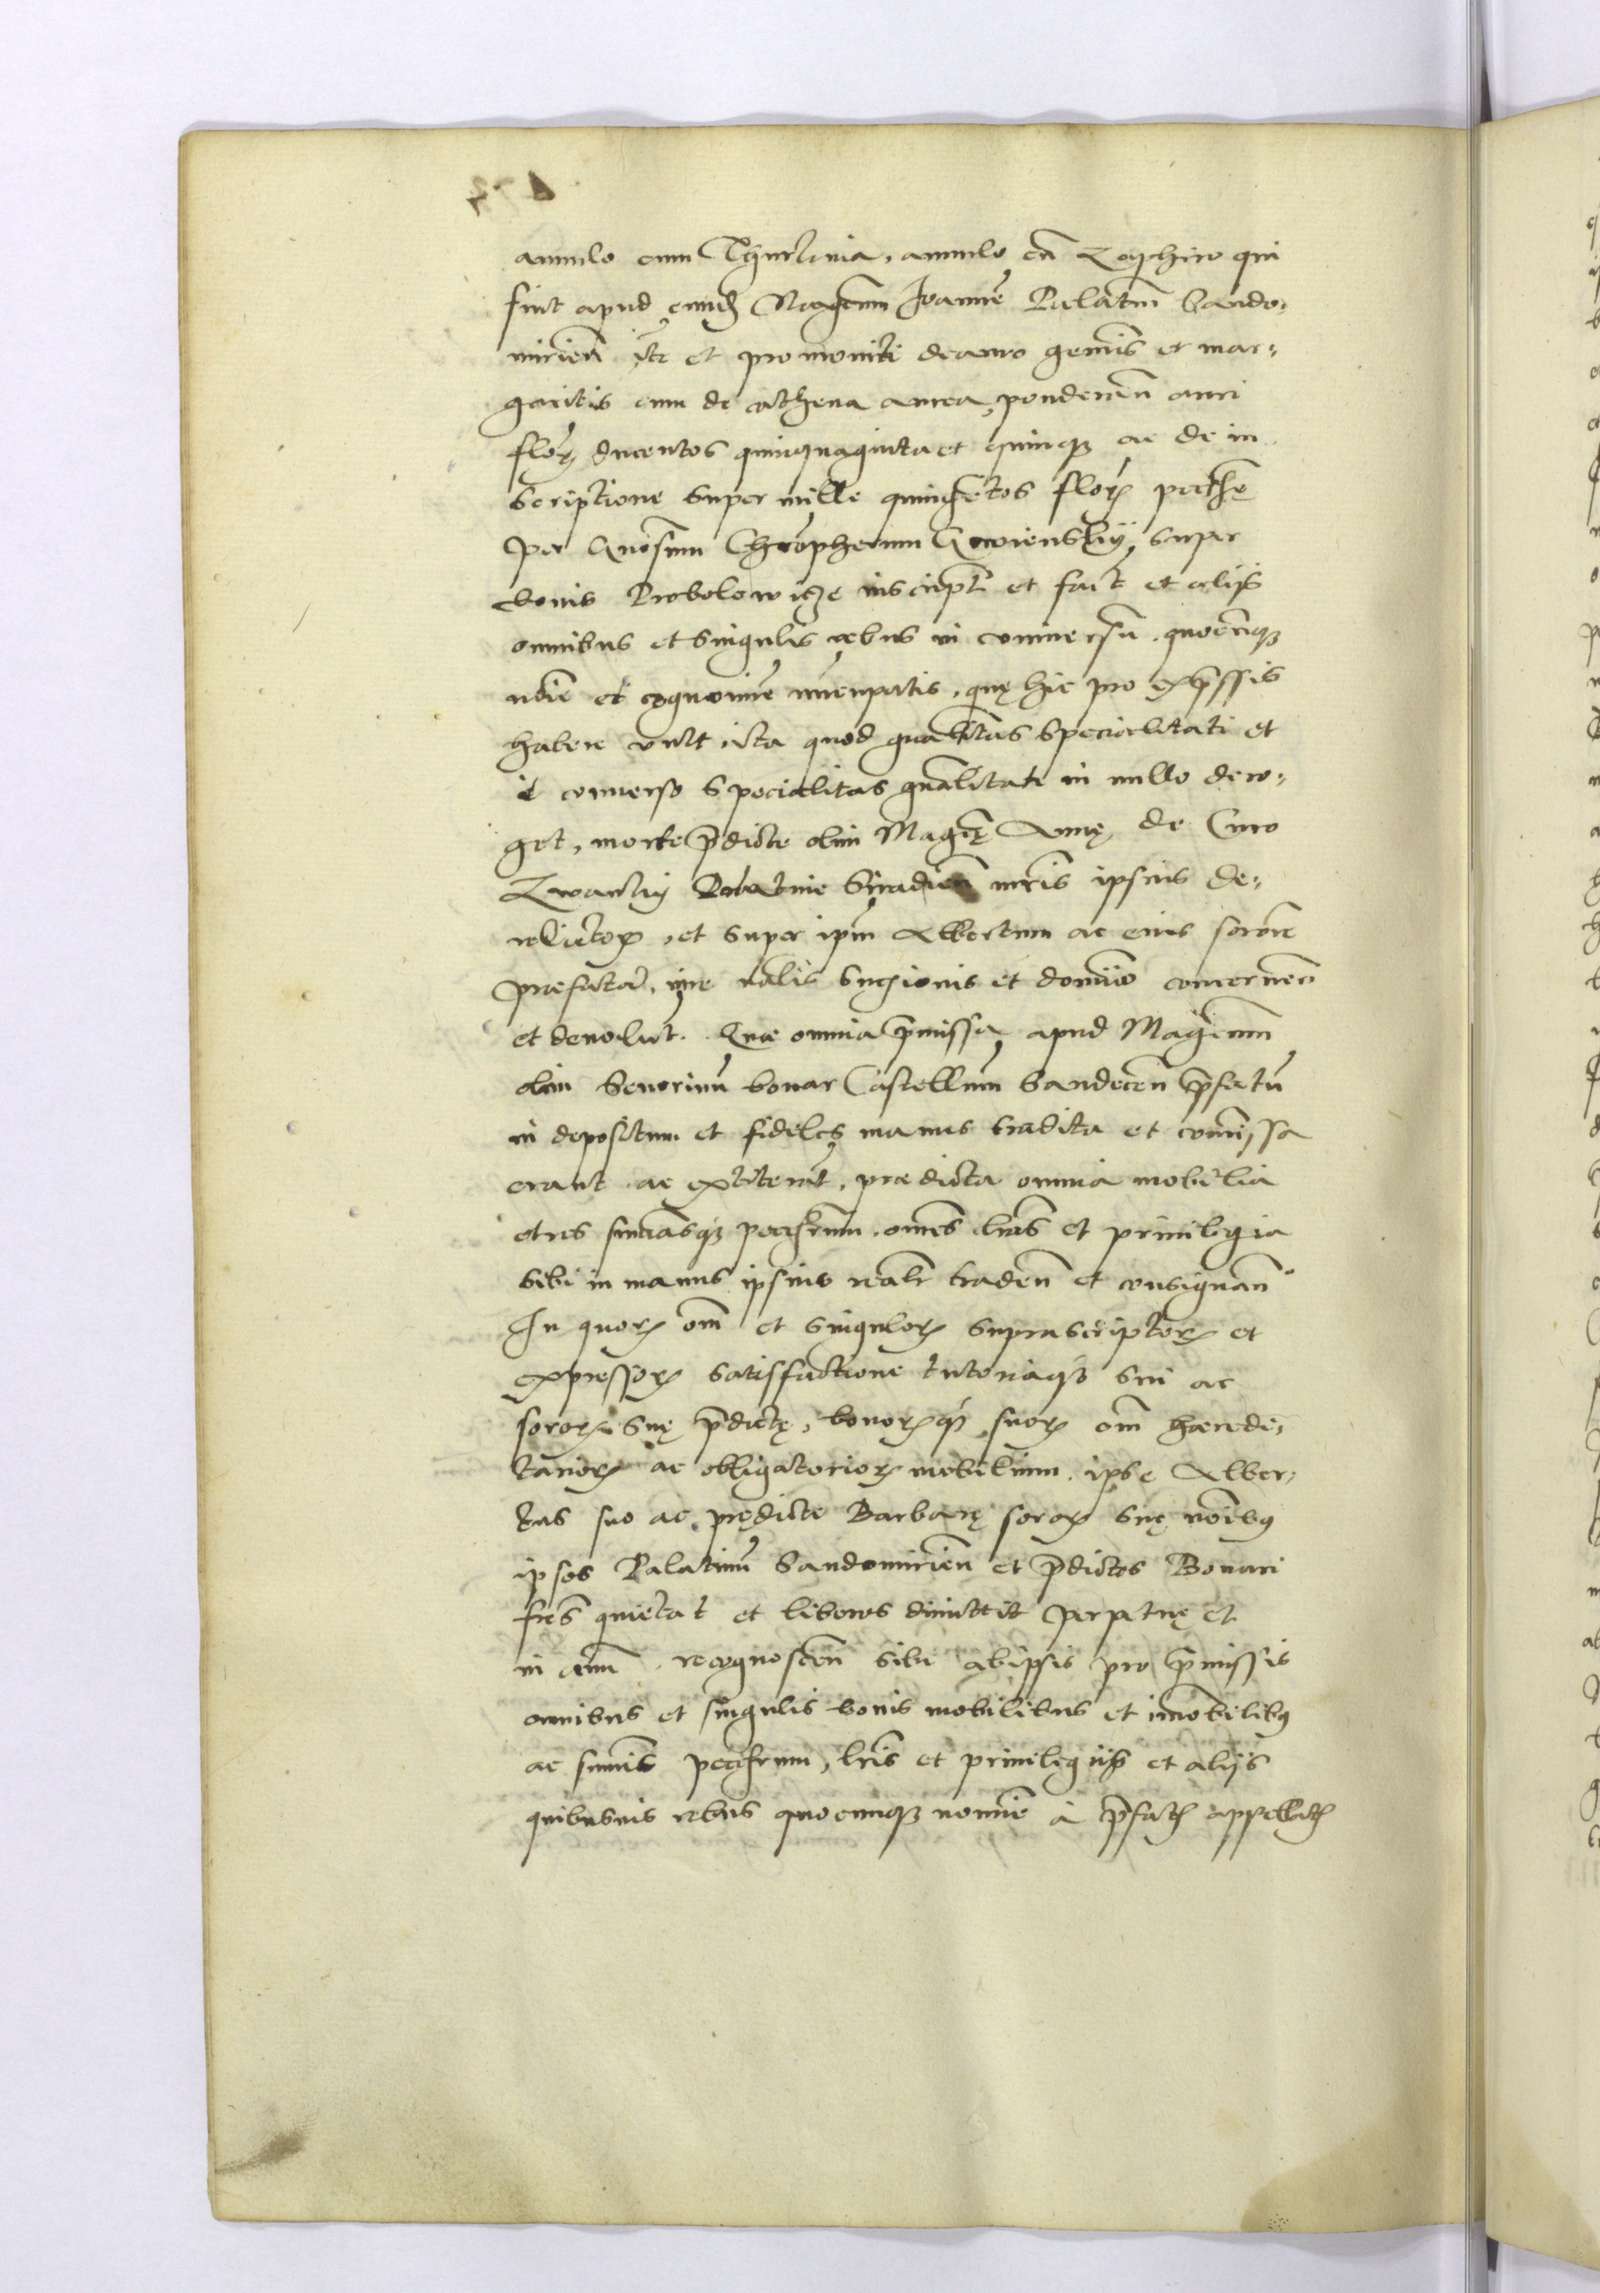 annulo cum Thurkinia, annulo cũ Zaphiro qui
fuit apud eund Magcum Joannẽ Palatinũ Sando,
mirien ite et pro monili de auro gemis et mar,
garitis cum de cathena aurea ponderan auri
flor ducentos quinquaginta et quinq ac de in
scriptione super mille quingẽtos flor pecunie
per Gnosum Chroopherum super
bonis inscript et fact et alijs
omnibus et singulis rebus in universũ quocũq
noie et cognomine nuncupatis, quę hic pro expssis
habere vult ita quod gnalitas specialitati et
è converso specialitas gnalitati in nullo dero,
get, morte pdicte olim Magcę Annę de Curo
Palatine Siradien mris ipsius de,
relictor, et super ipm Albertum ac eius sororẽ
praefata, iure nalis sucsionis et dominio concernen
et devolut. Quæ omnia pmissa apud Magcum
olim Severinũ bonar Castellanum Sandecen pfatũ
in depositum et fideles manus tradita et comissa
erant ac extiterũt, prædicta omnia mobilia
et res sumasq pecuniarum, omes lras et privilegia
sibi in manus ipsius realr traden et consignan
In quor om et singulor suprascriptor et
expressor satisfactione tutoriaq sui ac
soror suę pdictę, bonorq suor om hæredi,
tarior ac obligatorior mobilium, ipse Alber,
tus suo ac prędicte Barbarę soror suę noibus
ipsos Palatinũ Sandomirien et pdictos Bonari
fres quietat et liberos dimittit perpetuę et
in evum, recognoscen sibi ab ipsis pro pmissis
omnibus et singulis bonis mobilibus et imobilibus
ac sumis pecuniarum, lris et privilegijs et alijs
quibusvis rebus quocumq nomine à pfat appellat